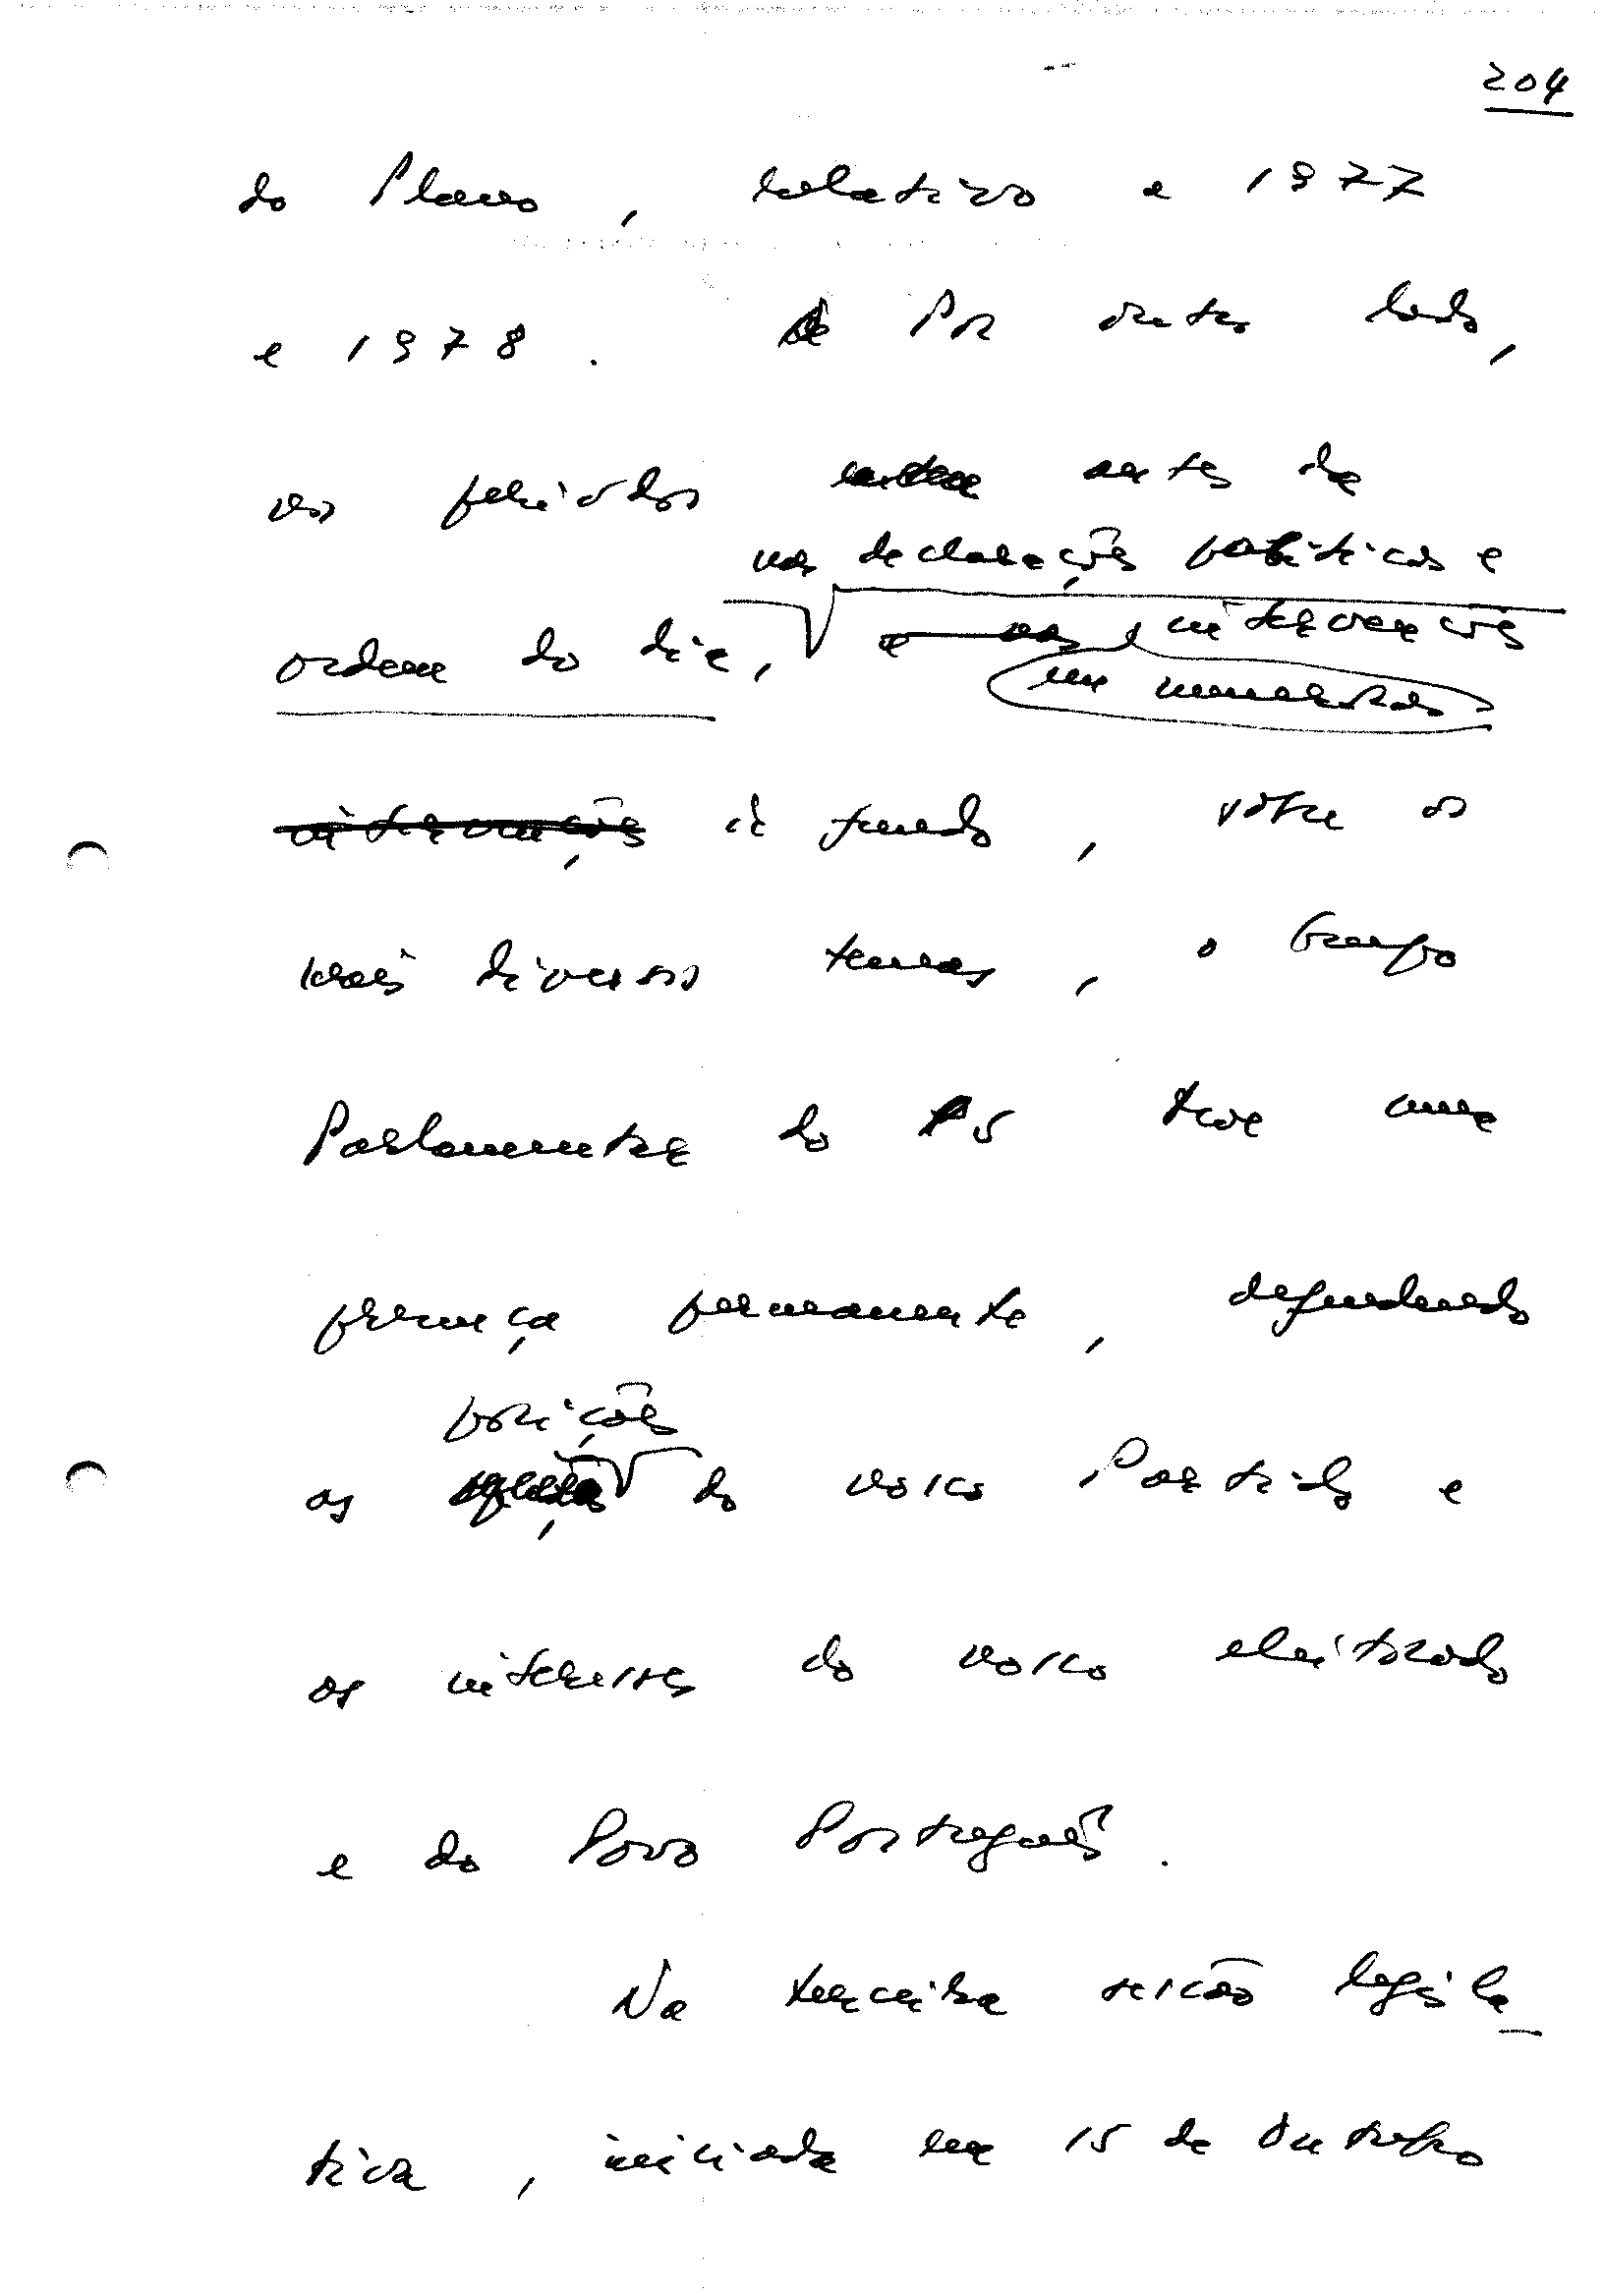 204
do Plano, relativo a 1977
e 1978. Por outro lado,
nos períodos antes da
nas declarações políticas e
ordem do dia, e nas intervenções
em numerosas
intervenções de fundo, sobre os
mais diversos temas, o Grupo
Parlamentar do PS teve uma
presença permanente, defendendo
as posições do nosso Partido e
os interesses do nosso eleitorado
e do Povo Português.
Na terceira sessão legisla
tiva, iniciada em 15 de Outubro